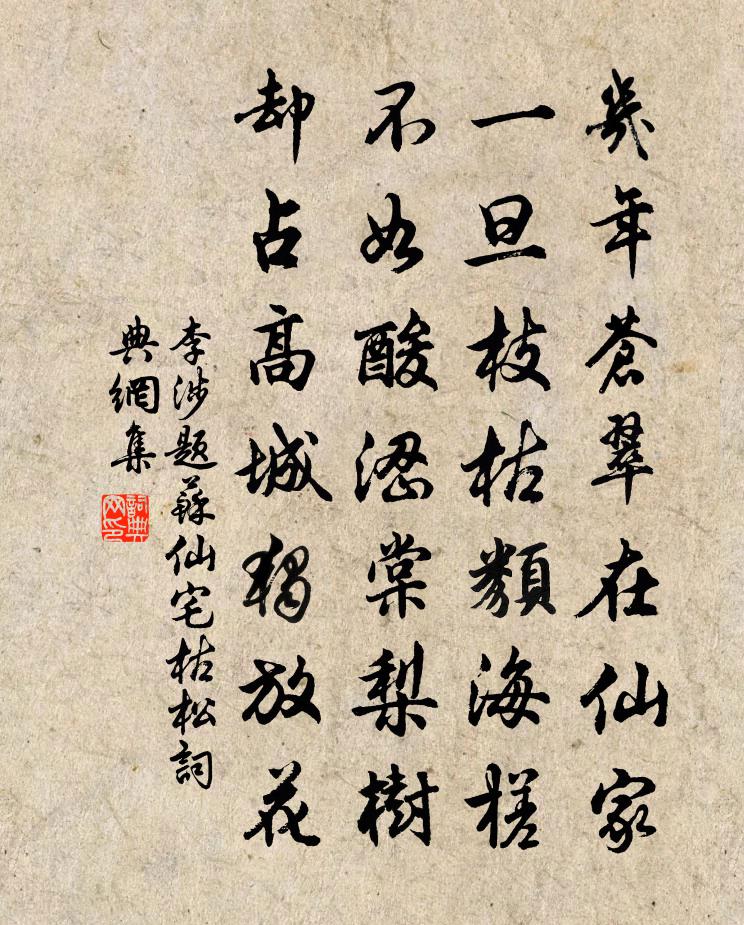 幾年蒼翠在仙家
一旦枝枯類海槎
不如酸澀棠梨樹
却占高城獨放花
李涉題蘇仙宅枯松詞
典網集
詞典網印